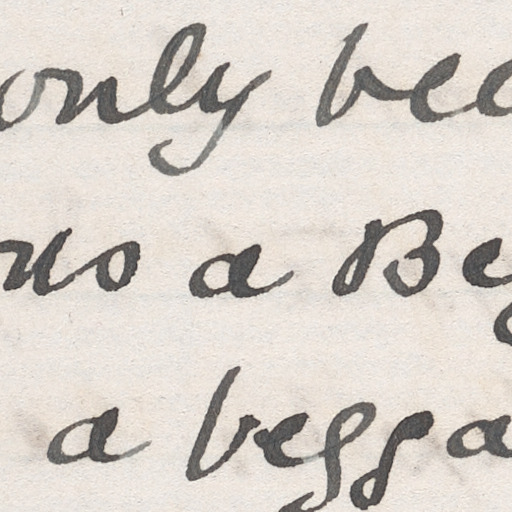 only bec
us a Beg
a begga